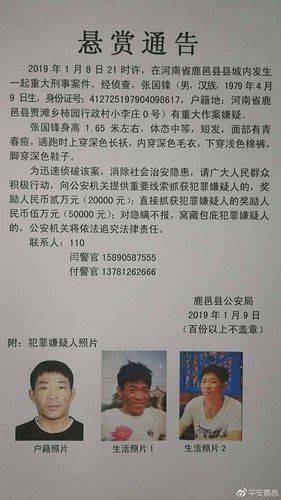 悬赏通告
2019 年 1 月 8 日 21 时许，在河南省鹿邑县县城内发生
一起重大刑事案件。经侦查，张国锋（男，汉族，1979 年 4 月
9 日生，身份证号：412725197904098617，户籍地：河南省鹿邑
县贾滩乡柿园行政村小李庄 0 号）有重大作案嫌疑。
张国锋身高 1.65 米左右，体态中等，短发，面部有
青春痘，逃跑时上穿深色长袄，内穿深色毛衣，下穿浅色棉裤，
脚穿深色鞋子。
为迅速侦破该案，消除社会治安隐患，请广大人民群众
积极行动，向公安机关提供重要线索抓获犯罪嫌疑人的，奖
励人民币贰万元（20000 元）；直接抓获犯罪嫌疑人的奖励人
民币伍万元（50000 元）；对隐瞒不报，窝藏包庇犯罪嫌疑人
的，公安机关将依法追究法律责任。
联系人：110
闫警官 15890587555
付警官 13781262666
鹿邑县公安局
2019 年 1 月 9 日
（百份以上不盖章）
附：犯罪嫌疑人照片
户籍照片 生活照片 1 生活照片 2
@平安鹿邑